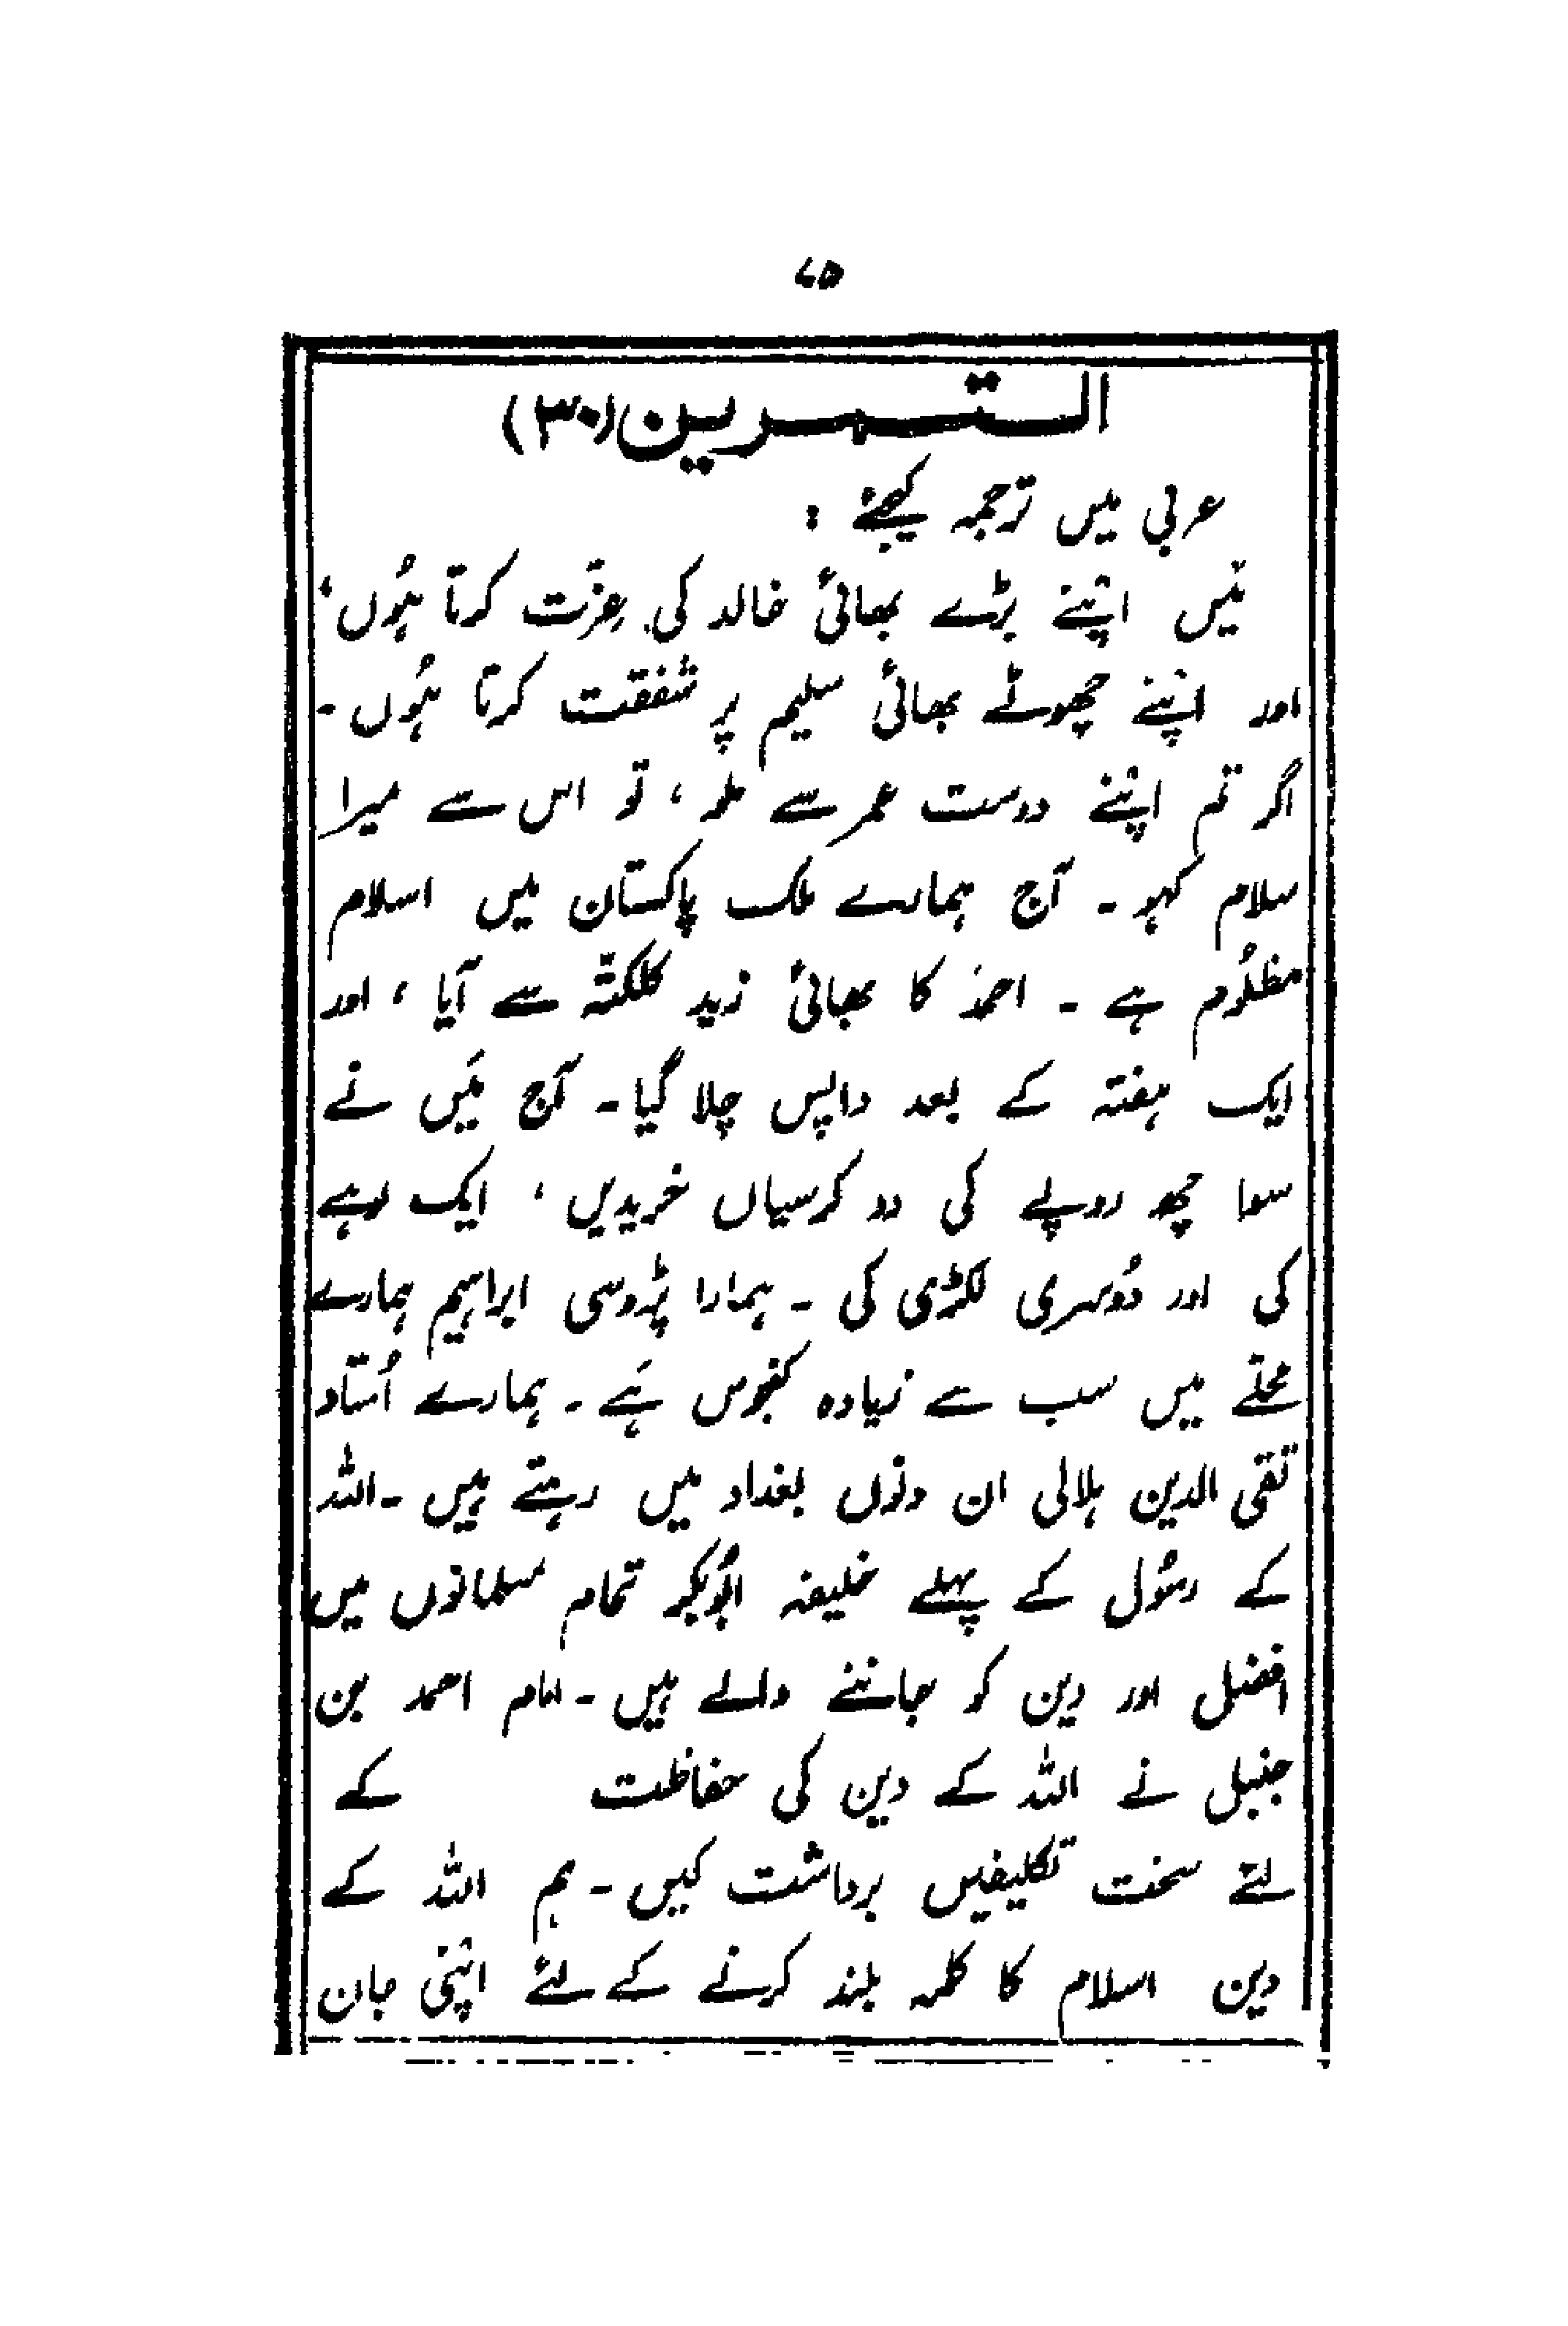 ۷۵
التمرین (۳۰)
عربی میں ترجمہ کیجئے :
مَیں اپنے بڑے بھائی خالد کی عِزّت کرتا ہُوں،
اور اپنے چھوٹے بھائی سلیم پر شفقت کرتا ہُوں۔
اگر تم اپنے دوست عمر سے ملو ، تو اس سے میرا
سلام کہو ۔ آج ہمارے ملک پاکستان میں اسلام
مظلُوم ہے ۔ احمد کا بھائی زید کلکتّہ سے آیا ، اور
ایک ہفتہ کے بعد واپس چلا گیا۔ آج مَیں نے
سوا چھ روپے کی دو کرسیاں خریدیں ، ایک لوہے
کی اور دُوسری لکڑی کی ۔ ہمارا پڑوسی ابراہیم ہمارے
محلّے میں سب سے زیادہ کنجوس ہَے ۔ ہمارے اُستاد
تقی الدین ہلالی ان دنوں بغداد میں رہتے ہیں ۔ اللہ
کے رسُول کے پہلے خلیفہ ابُوبکر تمام مسلمانوں میں
افضل اور دین کو جاننے والے ہیں ۔ امام احمد بن
حنبل نے اللہ کے دین کی حفاظت کے
لئے سخت تکلیفیں برداشت کیں ۔ ہم اللہ کے
دین اسلام کا کلمہ بلند کرنے کے لئے اپنی جان